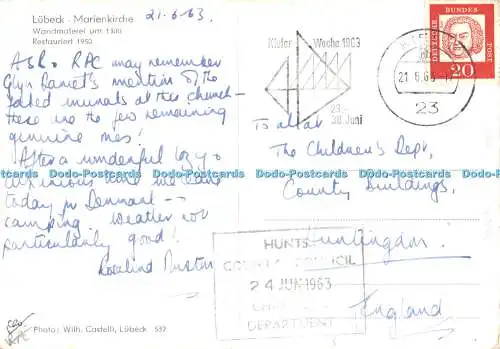 Lübeck · Marienkirche
Wandmalerei um 1300
Restauriert 1950
21.6.63.
ASR. RPC may remember
Glyn Daniel's mention of the
faked murals at this church -
these are the few remaining
genuine ones!
After a wonderful
today in Denmark --
camping. Weather not
particularly good!
Rosalind
Photo: Wilh. Castelli, Lübeck 532
Kieler Woche 1963
23.-
30. Juni
21.6.63
23
DEUTSCHE BUNDESPOST
20
To all at
The Children's Dept,
County Buildings,
Huntingdon!
England
HUNTS
COUNTY COUNCIL
24 JUN 1963
DEPARTMENT
Dodo-Postcards Dodo-Postcards Dodo-Postcards Dodo-Postcards Dodo-Postcards